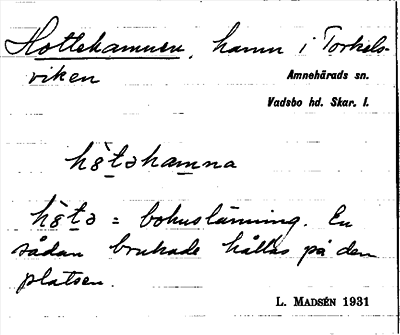 Hottehamnen, hamn i Torkels-
viken
Amnehärads sn.
Vadsbo hd. Skar. l.
hòtəhamna
hòtə = bohuslänning. En
sådan brukade hållas på den
platsen.
L. Madsén 1931